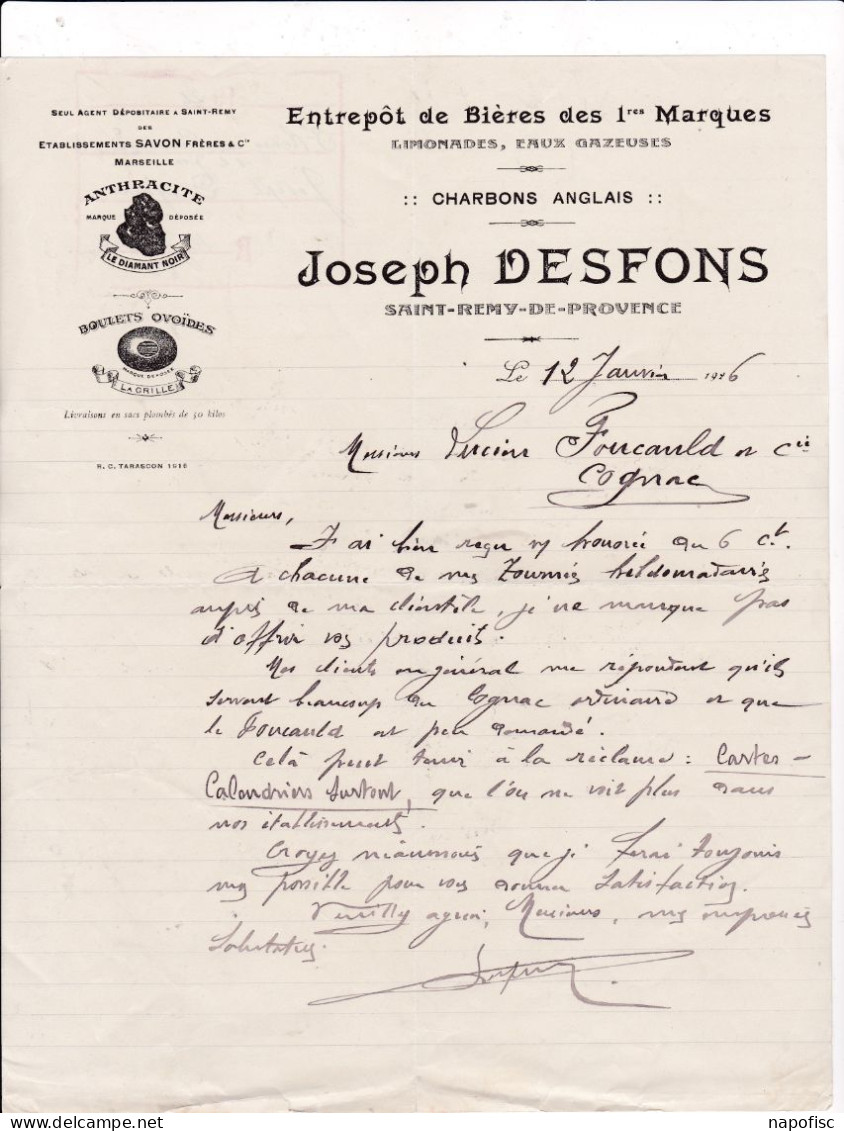 SEUL AGENT DÉPOSITAIRE A SAINT-REMY
DES
ETABLISSEMENTS SAVON FRÈRES & Cie
MARSEILLE
ANTHRACITE
MARQUE DÉPOSÉE
LE DIAMANT NOIR
BOULETS OVOÏDES
MARQUE DÉPOSÉE
LA GRILLE
Livraisons en sacs plombés de 50 kilos
R. C. TARASCON 1916
Entrepôt de Bières des 1res Marques
LIMONADES, EAUX GAZEUSES
:: CHARBONS ANGLAIS ::
Joseph DESFONS
SAINT-REMY-DE-PROVENCE
Le 12 Janvier 1926
Messieurs Lucien Foucauld et Cie
Cognac
Messieurs,
J'ai bien reçu v/ honorée du 6 ct.
A chacune de mes tournées hebdomadaires
auprès de ma clientèle, je ne manque pas
d'offrir vos produits.
Mes clients en général me répondent qu'ils
servent beaucoup du Cognac ordinaire et que
le Foucauld est peu demandé.
Celà peut tenir à la réclame : Cartes-
Calendriers surtout, que l'on ne voit plus dans
nos établissements.
Croyez néanmoins que je ferai toujours
mon possible pour vous donner satisfaction.
Veuillez agréer, Messieurs, mes empressées
Salutations.
napofisc